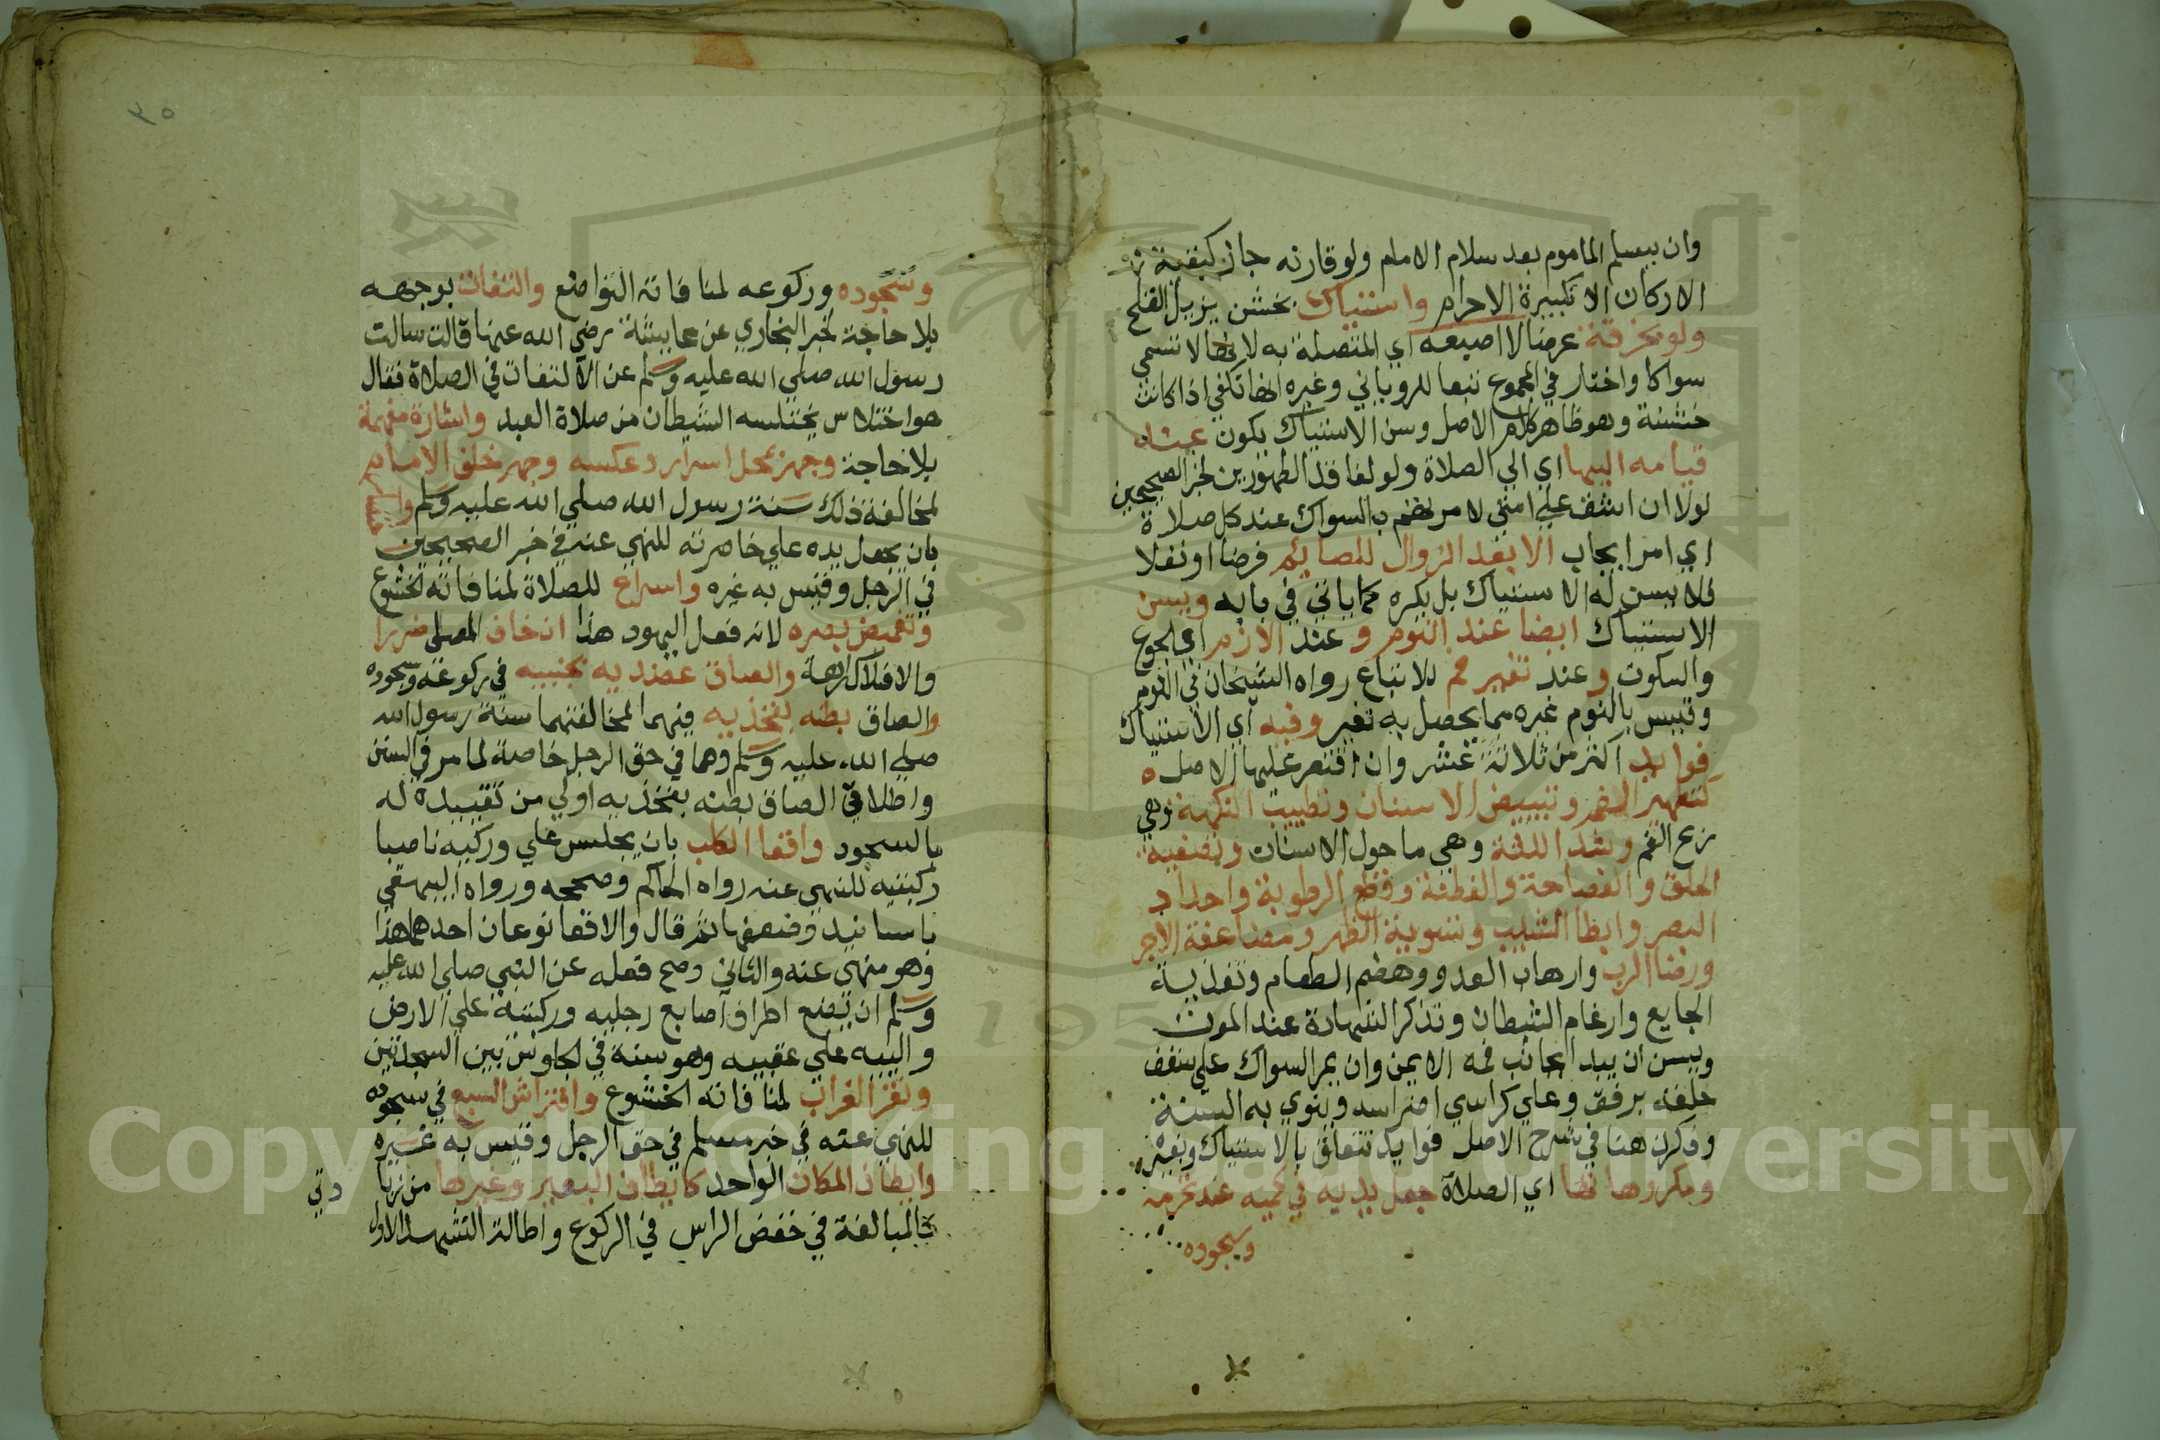 وان يسلم الماموم بعد سلام الامام ولو قارنه جاز كبقية
الاركان الا تكبيرة الاحرام واستياك بخشن يزيل القلح
ولو بخرقة عرضا لا اصبعه اي المتصلة به لانها لا تسمي
سواكا واختار في المجموع تبعا للروياني وغيره انها تكفي اذا كانت
خشنة وهو ظاهر كلام الاصل وسن الاستياك يكون عند
قيامه اليها اي الي الصلاة ولو لفاقد الطهورين لخبر الصحيحين
لولا ان اشق علي امتي لامرتهم بالسواك عند كل صلاة
اي امر ايجاب الا بعد الزوال للصايم فرضا او نفلا
فلا يسن له الاستياك بل يكره كما ياتي في بابه ويسن
الاستياك ايضا عند النوم وعند الازم اي الجوع
والسكوت وعند تغير فم للاتباع رواه الشيخان في النوم
وقيس بالنوم غيره مما يحصل به تغير وفيه اي الاستياك
فوايد اكثر من ثلاثة عشر وان اقتصر عليها الاصل ه
كتطهير الفم وتبييض الاسنان وتطييب النكهة وهي
ريح الفم وشد اللثة وهي ما حول الاسنان وتصفية
الحلق والفصاحة والفطنة وقطع الرطوبة واحداد
البصر وابطا الشيب وتسوية الظهر ومضاعفة الاجر
ورضا الرب وارهاب العدو وهضم الطعام وتغذية
الجايع وارغام الشيطان وتذكر الشهادة عند الموت
ويسن ان يبدا بجانب فمه الايمن وان يمر السواك علي سقف
حلقه برفق وعلي كراسي اضراسه وينوي به السنة
وذكرت هنا في شرح الاصل فوايد تتعلق بالاستياك وبغيره
ومكروهاتها اي الصلاة جعل يديه في كميه عند تحرمه
وسجوده
٣٥
وسجوده وركوعه لمنافاته التواضع والتفات بوجهه
بلا حاجة لخبر البخاري عن عايشة رضي الله عنها قالت سالت
رسول الله صلي الله عليه وسلم عن الالتفات في الصلاة فقال
هو اختلاس يختلسه الشيطان من صلاة العبد واشارة مفهمة
بلا حاجة وجهر بمحل اسرار وعكسه وجهر خلف الامام
لمخالفة ذلك سنة رسول الله صلي الله عليه وسلم
بان يجعل يده علي خاصرته للنهي عنه في خبر الصحيحين
في الرجل وقيس به غيره واسراع للصلاة لمنافاته الخشوع
وتغميض بصره لانه فعل اليهود هذا ان خاف المصلي ضررا
والا فلا كراهة والصاق عضديه بجنبيه في ركوعه وسجوده
والصاق بطنه بفخذيه فيهما لمخالفتهما سنة رسول الله
صلي الله عليه وسلم وهما في حق الرجل خاصة لما مر في السنن
واطلاقي الصاق بطنه بفخذيه اولي من تقييده له
بالسجود واقعا الكلب بان يجلس علي وركيه ناصبا
ركبتيه للنهي عنه رواه الحاكم وصححه ورواه البيهقي
باسانيد وضعفها ثم قال والاقعا نوعان احدهما هذا
وهو منهي عنه والثاني وصح فعله عن النبي صلي الله عليه
وسلم ان يضع اطراف اصابع رجليه وركبتيه علي الارض
والييه علي عقبيه وهو سنة في الجلوس بين السجدتين
ونقر الغراب لمنافاته الخشوع وافتراش السبع في سجوده
للنهي عنه في خبر مسلم في حق الرجل وقيس به غيره
وايطان المكان الواحد كايطان البعير وغيرها من
كالمبالغة في خفض الراس في الركوع واطالة التشهد الاول